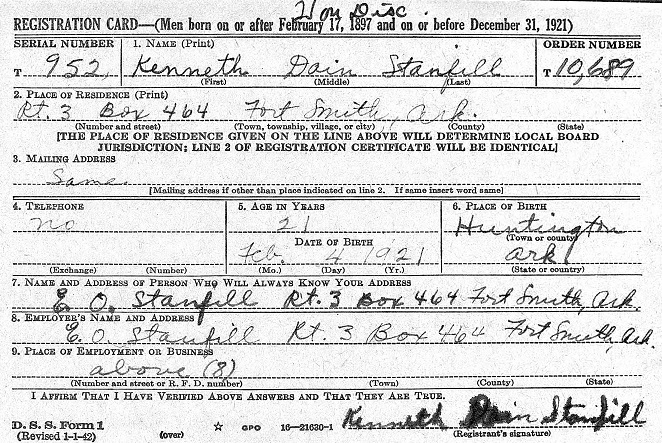 Hon Disc.
REGISTRATION CARD—(Men born on or after February 17, 1897 and on or before December 31, 1921)
SERIAL NUMBER 1. NAME (Print) ORDER NUMBER
T 952 Kenneth Dain Stanfill T 10,689
(First) (Middle) (Last)
2. PLACE OF RESIDENCE (Print)
Rt. 3 Box 464 Fort Smith, Ark.
(Number and street) (Town, township, village, or city) (County) (State)
[THE PLACE OF RESIDENCE GIVEN ON THE LINE ABOVE WILL DETERMINE LOCAL BOARD
JURISDICTION; LINE 2 OF REGISTRATION CERTIFICATE WILL BE IDENTICAL]
3. MAILING ADDRESS
Same
[Mailing address if other than place indicated on line 2. If same insert word same]
4. TELEPHONE 5. AGE IN YEARS 6. PLACE OF BIRTH
no 21 Huntington
DATE OF BIRTH (Town or county)
Feb. 4 1921 Ark
(Exchange) (Number) (Mo.) (Day) (Yr.) (State or country)
7. NAME AND ADDRESS OF PERSON WHO WILL ALWAYS KNOW YOUR ADDRESS
E. O. Stanfill Rt. 3 Box 464 Fort Smith, Ark.
8. EMPLOYER'S NAME AND ADDRESS
E. O. Stanfill Rt. 3 Box 464 Fort Smith, Ark.
9. PLACE OF EMPLOYMENT OR BUSINESS
above (8)
(Number and street or R. F. D. number) (Town) (County) (State)
I AFFIRM THAT I HAVE VERIFIED ABOVE ANSWERS AND THAT THEY ARE TRUE.
D. S. S. Form 1
(Revised 1-1-42) (over) ☆ GPO 16—21630-1 Kenneth Dain Stanfill
(Registrant's signature)